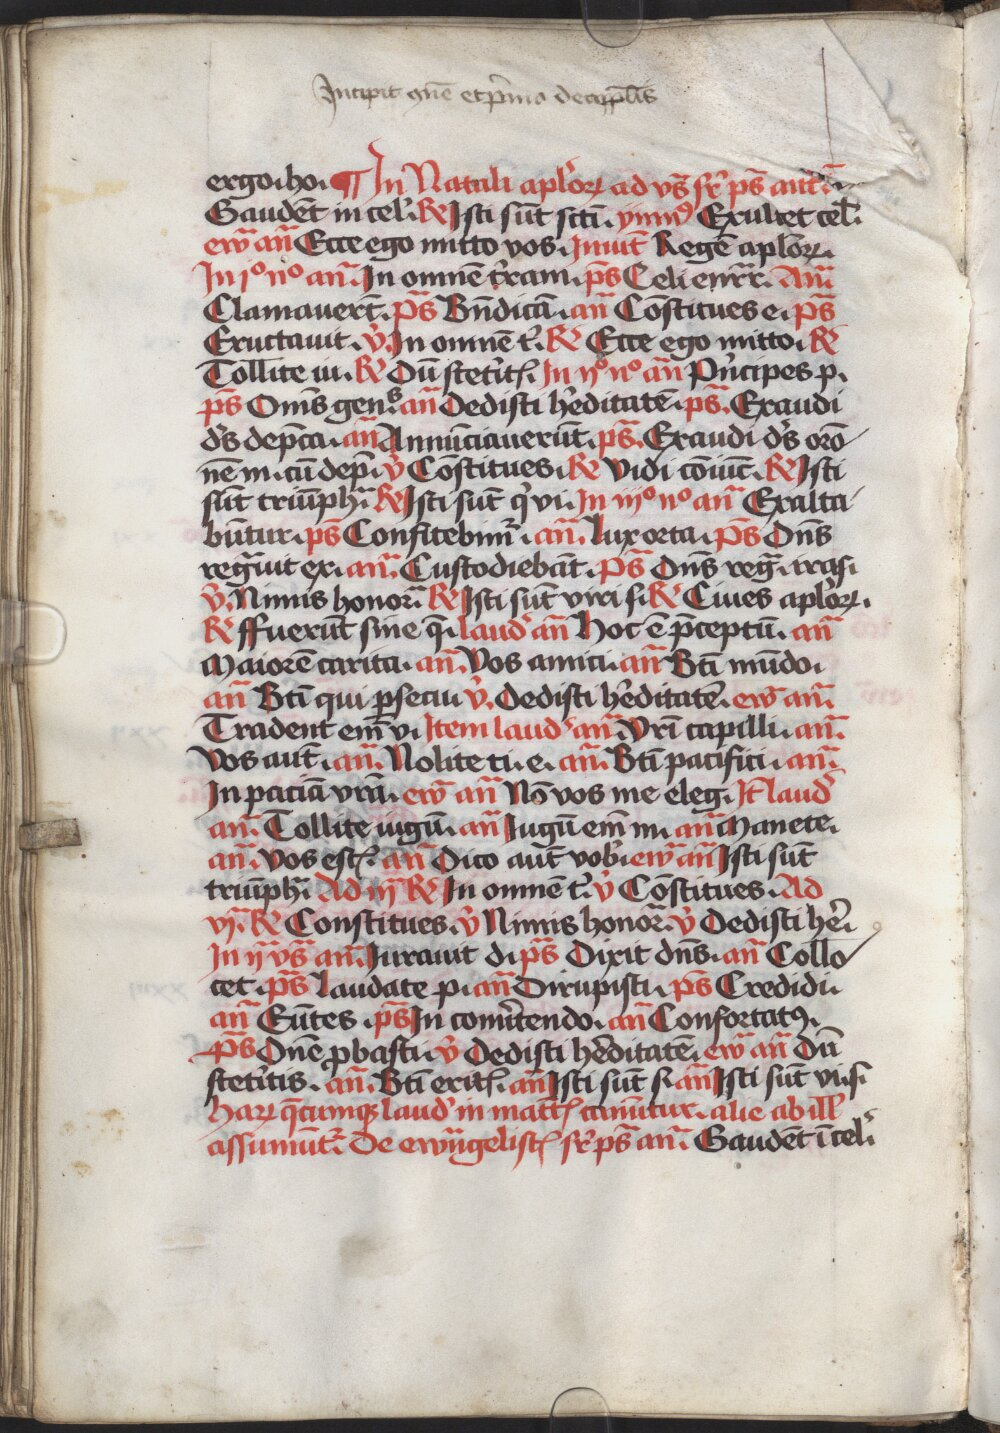 Incipit 9mūe et p̄imo de ap̄plis
ergo. ho. ¶ In Natali apl'oꝝ ad vs̄ sr̄ ps̄ ant̄.
Gaudēt in cel'. R̄ Isti sūt scti. ymn9 Exultet cel'.
ew̄ an̄ Ecce ego mitto vos. Inuit̄ Regē aplōꝝ.
In j° n° an̄. In omnē t'ram. ps̄ Celi enrr̄. An̄
Clamauerūt. ps̄ Bn̄dicā. an̄ Cōstitues e. ps̄
Eructauit. v̄. In omnē t'. R̄ Ecce ego mitto. R̄
Tollite iu. R̄ Dū stetit'. In ij° n° an̄ P'ncipes p.
ps̄ Om̄s gens. an̄ Dedisti h'editatē. ps̄. Exaudi
d's dep̄ca. an̄ Annūciauerūt. ps̄. Exaudi d's orō
nē m. cū dep̄. v̄ Cōstitues. R̄ Vidi cōiūc̄. R̄ Isti
sūt triūph̄. R̄ Isti sūt q' vi. In iij° n° an̄ Exalta
būtur. ps̄ Confitebim̄'. an̄. Lux orta. ps̄ Dn̄s
regn̄uit ex. an̄. Custodiebāt. ps̄ Dn̄s regn̄. iras.
v̄. Nimis honor̄. R̄ Isti sūt viri s. R̄ Ciues apl'oꝝ.
R̄ ffuerūt sine q̄. laud' an̄ Hoc ē p̄ceptū. an̄
Maiorē carita. an̄. Vos amici. an̄ Bt̄i mūdo.
an̄ Bt̄i qui ꝑsecu. v̄. Dedisti h'editatē. ew̄ an̄.
Tradent em̄ v. Item laud' an̄. Vr̄i capilli. an̄.
Vos aut̄. an̄. Nolite ti. e. an̄. Bt̄i pacifici. an̄.
In paciā vr̄ā. ew̄ an̄ Nō vos me eleg. It̄ laud'
an̄. Tollite iugū. an̄ Iugū em̄ m. an̄ Manete.
an̄. Vos est'. an̄ Dico aut̄ vob'. ew̄ an̄ Isti sūt
triūph̄. Ad iij R̄ In omnē t'. v̄ Cōstitues. Ad
vj. R̄ Constitues. v̄ Nimis honor̄. v̄ Dedisti h'e.
In ij vs̄ an̄. Iurauit d. ps̄ Dixit dn̄s. an̄ Collo
cet. ps̄ Laudate p. an̄ Dirupisti. ps̄ Credidi.
an̄ Eūtes. ps̄ In con'tendo. an̄ Confortat9.
ps̄ Dn̄e ꝓbasti. v̄ Dedisti h'editatē. ew̄ an̄ Dū
stet'itis. an̄. Bt̄i erit'. an̄ Isti sūt s. an̄ Isti sūt vi. s.
Haꝝ q̄cumqꝫ laud' in matt' canūtur. alie ab ill'
assumūt'. De ewāgelist' sr̄ ps̄ an̄. Gaudēt ī cel'.